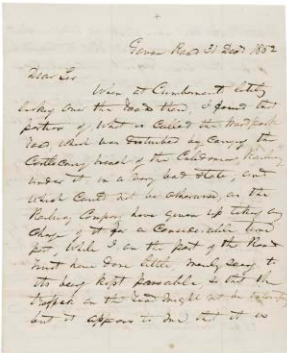 Gowan Road 31 Decr 1852
Dear Sir
When at Cumbernauld lately
looking over the roads there, I found that
portion of what is called the
road, which was disturbed by carrying the
Castlecary branch of the Caledonian Railway
under it in a very bad state, and
which could not be otherwise, as the
Railway Company have given up taking any
charge of it for a considerable time
past. While I on the part of the Road
Trust have done little, merely
its being kept passable, so that the
on the road might not be
but it appears to me that it is